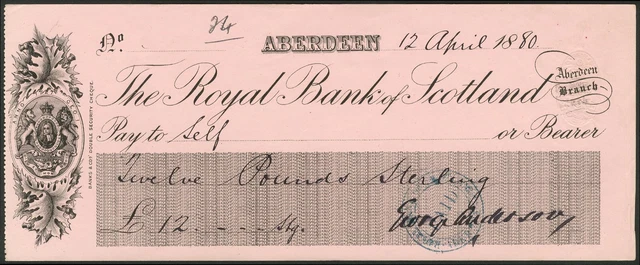 No 24 ABERDEEN 12 April 1880.
The Royal Bank of Scotland
Aberdeen
Branch
Pay to Self or Bearer
Twelve Pounds Sterling
£12 - - - - Stg. George Anderson
BANKS & CO'S DOUBLE SECURITY CHEQUE.